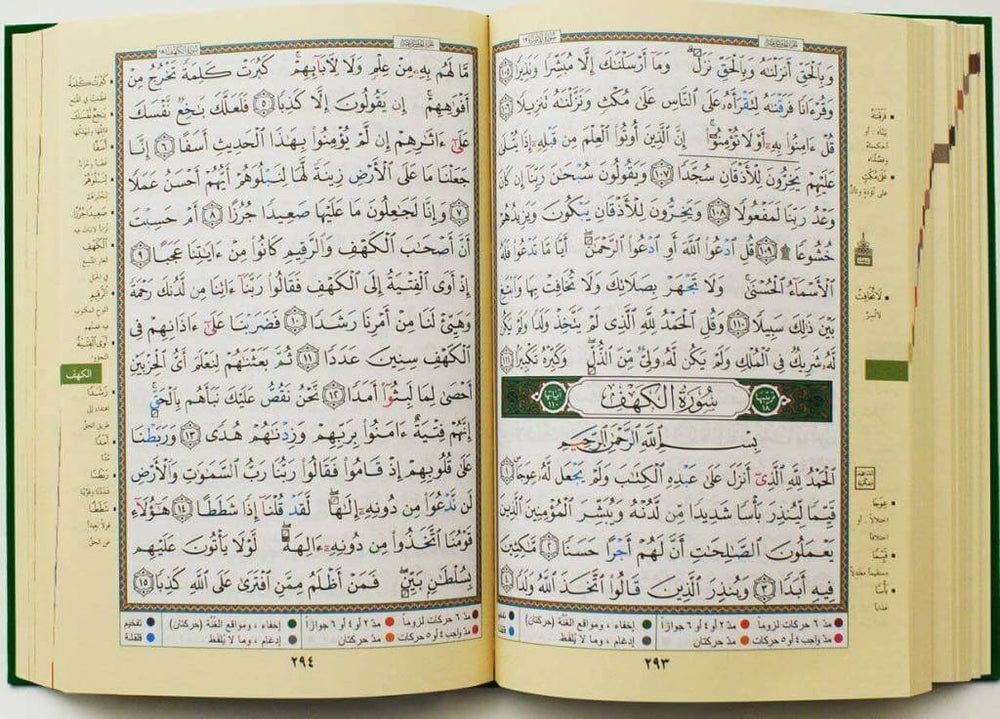 وَبِالْحَقِّ أَنزَلْنَاهُ وَبِالْحَقِّ نَزَلَ وَمَا أَرْسَلْنَاكَ إِلَّا مُبَشِّرًا وَنَذِيرًا ١٠٥
وَقُرْءَانًا فَرَقْنَاهُ لِتَقْرَأَهُ عَلَى النَّاسِ عَلَىٰ مُكْثٍ وَنَزَّلْنَاهُ تَنزِيلًا ١٠٦
قُلْ ءَامِنُوا بِهِ أَوْ لَا تُؤْمِنُوا إِنَّ الَّذِينَ أُوتُوا الْعِلْمَ مِن قَبْلِهِ إِذَا يُتْلَىٰ
عَلَيْهِمْ يَخِرُّونَ لِلْأَذْقَانِ سُجَّدًا ١٠٧ وَيَقُولُونَ سُبْحَٰنَ رَبِّنَا إِن كَانَ
وَعْدُ رَبِّنَا لَمَفْعُولًا ١٠٨ وَيَخِرُّونَ لِلْأَذْقَانِ يَبْكُونَ وَيَزِيدُهُمْ
خُشُوعًا ١٠٩ قُلِ ادْعُوا اللَّهَ أَوِ ادْعُوا الرَّحْمَٰنَ أَيًّا مَّا تَدْعُوا فَلَهُ
الْأَسْمَاءُ الْحُسْنَىٰ وَلَا تَجْهَرْ بِصَلَاتِكَ وَلَا تُخَافِتْ بِهَا وَابْتَغِ
بَيْنَ ذَٰلِكَ سَبِيلًا ١١٠ وَقُلِ الْحَمْدُ لِلَّهِ الَّذِي لَمْ يَتَّخِذْ وَلَدًا وَلَمْ يَكُن
لَّهُ شَرِيكٌ فِي الْمُلْكِ وَلَمْ يَكُن لَّهُ وَلِيٌّ مِّنَ الذُّلِّ وَكَبِّرْهُ تَكْبِيرًا ١١١
ترتيبها ١٨ سُورَةُ الْكَهْفِ آياتها ١١٠
بِسْمِ اللَّهِ الرَّحْمَٰنِ الرَّحِيمِ
الْحَمْدُ لِلَّهِ الَّذِي أَنزَلَ عَلَىٰ عَبْدِهِ الْكِتَٰبَ وَلَمْ يَجْعَل لَّهُ عِوَجًا ١
قَيِّمًا لِّيُنذِرَ بَأْسًا شَدِيدًا مِّن لَّدُنْهُ وَيُبَشِّرَ الْمُؤْمِنِينَ الَّذِينَ
يَعْمَلُونَ الصَّٰلِحَٰتِ أَنَّ لَهُمْ أَجْرًا حَسَنًا ٢ مَّٰكِثِينَ
فِيهِ أَبَدًا ٣ وَيُنذِرَ الَّذِينَ قَالُوا اتَّخَذَ اللَّهُ وَلَدًا ٤
فَرَقْنَاهُ
عَلَىٰ مُكْثٍ
لَا تُخَافِتْ
لا تُسِرَّ
عِوَجًا
اختلالاً، أو
اختلافاً
قَيِّمًا
مستقيماً معتدلاً
بَأْسًا
عذاباً
مدّ ٦ حركات لزوماً مدّ ٢ أو ٤ أو ٦ جوازاً إخفاء، ومواقع الغُنَّة (حركتان) تفخيم
مدّ واجب ٤ أو ٥ حركات مدّ حركتان إدغام، وما لا يُلفَظ قلقلة
٢٩٣
مَّا لَهُم بِهِ مِنْ عِلْمٍ وَلَا لِآبَائِهِمْ كَبُرَتْ كَلِمَةً تَخْرُجُ مِنْ
أَفْوَاهِهِمْ إِن يَقُولُونَ إِلَّا كَذِبًا ٥ فَلَعَلَّكَ بَٰخِعٌ نَّفْسَكَ
عَلَىٰ ءَاثَٰرِهِمْ إِن لَّمْ يُؤْمِنُوا بِهَٰذَا الْحَدِيثِ أَسَفًا ٦ إِنَّا
جَعَلْنَا مَا عَلَى الْأَرْضِ زِينَةً لَّهَا لِنَبْلُوَهُمْ أَيُّهُمْ أَحْسَنُ عَمَلًا
٧ وَإِنَّا لَجَٰعِلُونَ مَا عَلَيْهَا صَعِيدًا جُرُزًا ٨ أَمْ حَسِبْتَ
أَنَّ أَصْحَٰبَ الْكَهْفِ وَالرَّقِيمِ كَانُوا مِنْ ءَايَٰتِنَا عَجَبًا ٩
إِذْ أَوَى الْفِتْيَةُ إِلَى الْكَهْفِ فَقَالُوا رَبَّنَا ءَاتِنَا مِن لَّدُنكَ رَحْمَةً
وَهَيِّئْ لَنَا مِنْ أَمْرِنَا رَشَدًا ١٠ فَضَرَبْنَا عَلَىٰ ءَاذَانِهِمْ فِي
الْكَهْفِ سِنِينَ عَدَدًا ١١ ثُمَّ بَعَثْنَٰهُمْ لِنَعْلَمَ أَيُّ الْحِزْبَيْنِ
أَحْصَىٰ لِمَا لَبِثُوا أَمَدًا ١٢ نَّحْنُ نَقُصُّ عَلَيْكَ نَبَأَهُم بِالْحَقِّ
إِنَّهُمْ فِتْيَةٌ ءَامَنُوا بِرَبِّهِمْ وَزِدْنَٰهُمْ هُدًى ١٣ وَرَبَطْنَا
عَلَىٰ قُلُوبِهِمْ إِذْ قَامُوا فَقَالُوا رَبُّنَا رَبُّ السَّمَٰوَٰتِ وَالْأَرْضِ
لَن نَّدْعُوَا مِن دُونِهِ إِلَٰهًا لَّقَدْ قُلْنَا إِذًا شَطَطًا ١٤ هَٰؤُلَاءِ
قَوْمُنَا اتَّخَذُوا مِن دُونِهِ ءَالِهَةً لَّوْلَا يَأْتُونَ عَلَيْهِم
بِسُلْطَٰنٍ بَيِّنٍ فَمَنْ أَظْلَمُ مِمَّنِ افْتَرَىٰ عَلَى اللَّهِ كَذِبًا ١٥
كَبُرَتْ كَلِمَةً
بَٰخِعٌ نَّفْسَكَ
أَسَفًا
لِنَبْلُوَهُمْ
صَعِيدًا جُرُزًا
الْكَهْفِ
الرَّقِيمِ
أَوَى الْفِتْيَةُ
الكهف
رَشَدًا
أَمَدًا
رَبَطْنَا
شَطَطًا
مدّ ٦ حركات لزوماً مدّ ٢ أو ٤ أو ٦ جوازاً إخفاء، ومواقع الغُنَّة (حركتان) تفخيم
مدّ واجب ٤ أو ٥ حركات مدّ حركتان إدغام، وما لا يُلفَظ قلقلة
٢٩٤